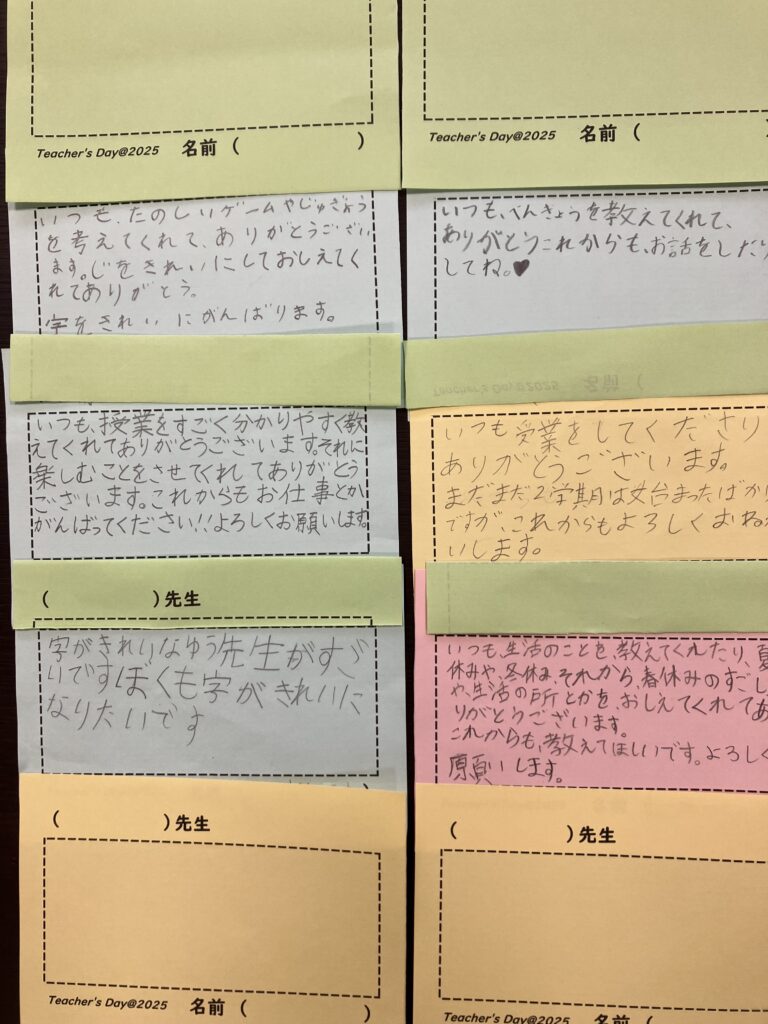 Teacher's Day@2025 名前 ( )
いつも、たのしいゲームやじゅぎょう
を考えてくれて、ありがとうござい
ます。じをきれいにしておしえてく
れてありがとう。
字をきれいにがんばります。
いつも、授業をすごく分かりやすく教
えてくれてありがとうございます。それに
楽しむことをさせてくれてありがとう
ございます。これからもお仕事とか
がんばってください!!よろしくお願いします。
( )先生
字がきれいなゆう先生がすご
いですぼくも字がきれいに
なりたいです
( )先生
Teacher's Day@2025 名前 ( )
Teacher's Day@2025 名前 (
いつも、べんきょうを教えてくれて、
ありがとうこれからも、お話をしたり
してね。♥
Teacher's Day@2025 名前 (
いつも受業をしてくださり
ありがとうございます。
まだまだ2学期は始まったばかり
ですが、これからもよろしくおね
いします。
いつも、生活のことを、教えてくれたり、夏
休みや、冬休み、それから、春休みのすごし
や、生活の所とかを、おしえてくれてあ
りがとうございます。
これからも、教えてほしいです。よろしく
原頁いします。
( )先生
Teacher's Day@2025 名前 (